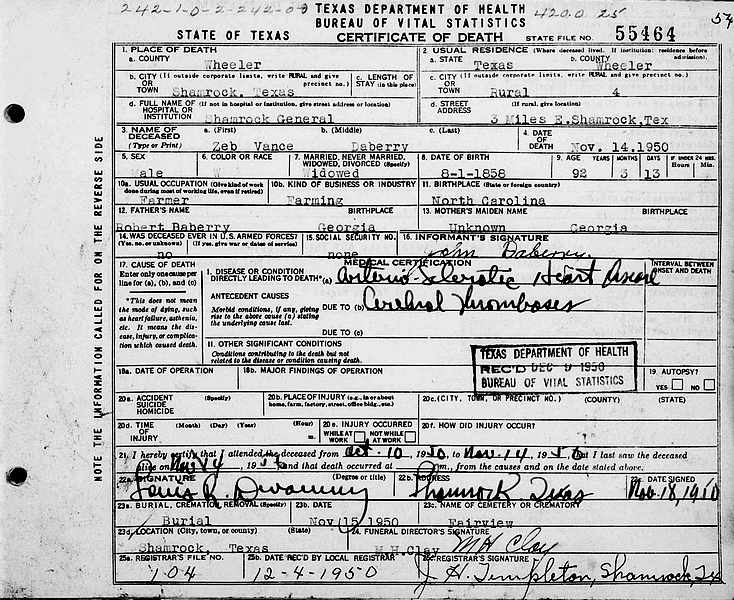 242-1-0-2-242-0 0 TEXAS DEPARTMENT OF HEALTH 420.0 25 54
BUREAU OF VITAL STATISTICS
STATE OF TEXAS CERTIFICATE OF DEATH STATE FILE NO. 55464
1. PLACE OF DEATH 2. USUAL RESIDENCE (Where deceased lived. If institution: residence before admission).
a. COUNTY Wheeler a. STATE Texas b. COUNTY Wheeler
b. CITY (If outside corporate limits, write RURAL and give precinct no.) OR TOWN Shamrock. Texas c. LENGTH OF STAY (in this place) c. CITY (If outside corporate limits, write RURAL and give precinct no.) OR TOWN Rural 4
d. FULL NAME OF HOSPITAL OR INSTITUTION (If not in hospital or institution, give street address or location) Shamrock General d. STREET ADDRESS (If rural, give location) 3 Miles E.Shamrock,Tex
3. NAME OF DECEASED (Type or Print) a. (First) Zeb Vance b. (Middle) Daberry c. (Last) 4. DATE OF DEATH Nov. 14.1950
5. SEX Male 6. COLOR OR RACE W 7. MARRIED, NEVER MARRIED, WIDOWED, DIVORCED (Specify) Widowed 8. DATE OF BIRTH 8-1-1858 9. AGE YEARS 92 MONTHS 3 DAYS 13 IF UNDER 24 HRS. Hours Min.
10a. USUAL OCCUPATION (Give kind of work done during most of working life, even if retired) Farmer 10b. KIND OF BUSINESS OR INDUSTRY Farming 11. BIRTHPLACE (State or foreign country) North Carolina
12. FATHER'S NAME Robert Baberry BIRTHPLACE Georgia 13. MOTHER'S MAIDEN NAME Unknown BIRTHPLACE Georgia
14. WAS DECEASED EVER IN U.S. ARMED FORCES? (Yes, no, or unknown) (If yes, give war or dates of service) no 15. SOCIAL SECURITY NO. none 16. INFORMANT'S SIGNATURE John Daberry
17. CAUSE OF DEATH MEDICAL CERTIFICATION INTERVAL BETWEEN ONSET AND DEATH
Enter only one cause per line for (a), (b), and (c)
I. DISEASE OR CONDITION DIRECTLY LEADING TO DEATH* (a) Arterio-Sclerotic Heart Disease
*This does not mean the mode of dying, such as heart failure, asthenia, etc. It means the disease, injury, or complication which caused death.
ANTECEDENT CAUSES
Morbid conditions, if any, giving rise to the above cause (a) stating the underlying cause last.
DUE TO (b) Cerebral Thromboses
DUE TO (c)
II. OTHER SIGNIFICANT CONDITIONS
Conditions contributing to the death but not related to the disease or condition causing death.
TEXAS DEPARTMENT OF HEALTH
REC'D DEC 9 1950
BUREAU OF VITAL STATISTICS
18a. DATE OF OPERATION 18b. MAJOR FINDINGS OF OPERATION 19. AUTOPSY? YES NO
20a. ACCIDENT SUICIDE HOMICIDE (Specify) 20b. PLACE OF INJURY (e.g., in or about home, farm, factory, street, office bldg., etc.) 20c. (CITY, TOWN, OR PRECINCT NO.) (COUNTY) (STATE)
20d. TIME OF INJURY (Month) (Day) (Year) (Hour) m. 20e. INJURY OCCURRED WHILE AT WORK NOT WHILE AT WORK 20f. HOW DID INJURY OCCUR?
21. I hereby certify that I attended the deceased from Oct. 10, 1950, to Nov. 14, 1950, that I last saw the deceased
alive on Nov 14, 1950, and that death occurred at m., from the causes and on the date stated above.
22a. SIGNATURE (Degree or title) 22b. ADDRESS Shamrock, Texas 22c. DATE SIGNED Nov. 18, 1950
23a. BURIAL, CREMATION, REMOVAL (Specify) Burial 23b. DATE Nov 15 1950 23c. NAME OF CEMETERY OR CREMATORY Fairview
23d. LOCATION (City, town, or county) (State) Shamrock, Texas 24. FUNERAL DIRECTOR'S SIGNATURE M.H.Clay M H Clay
25a. REGISTRAR'S FILE NO. 104 25b. DATE REC'D BY LOCAL REGISTRAR 12-4-1950 25c. REGISTRAR'S SIGNATURE J. H. Templeton, Shamrock, Tx
NOTE THE INFORMATION CALLED FOR ON THE REVERSE SIDE